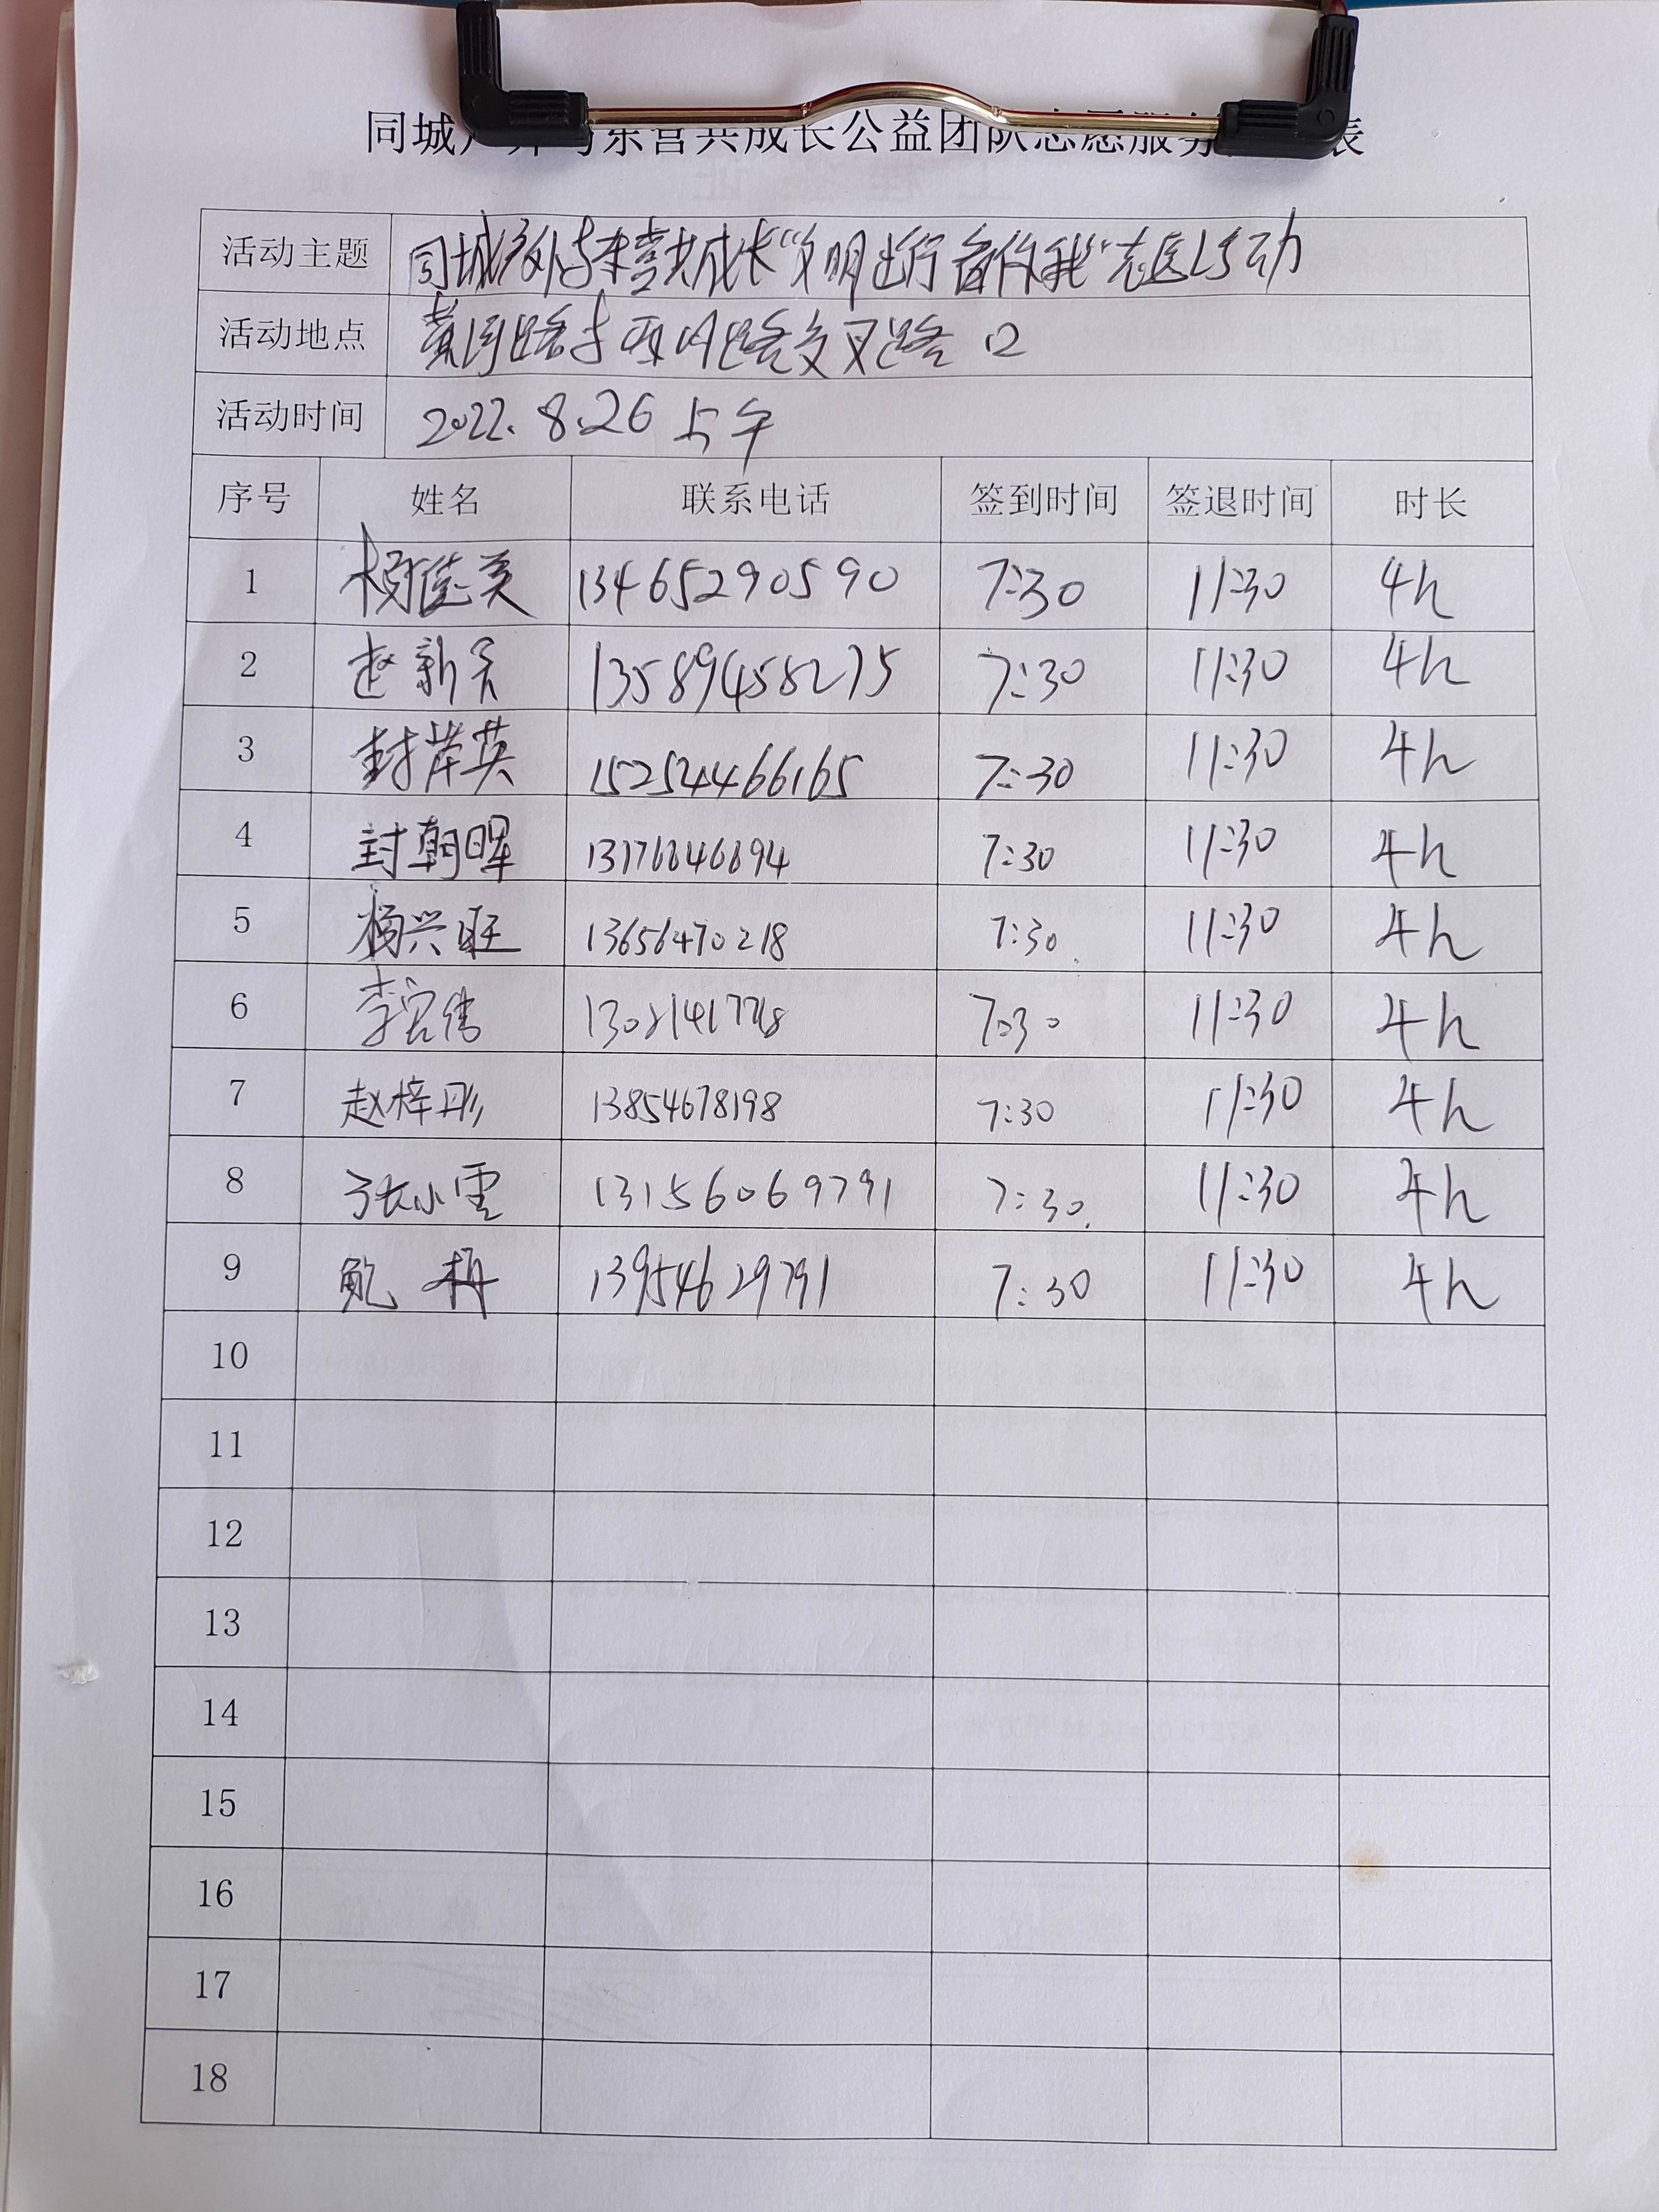 同城户外与东营共成长公益团队志愿服务 表
活动主题 同城户外与东营共成长“文明出行 有你有我”志愿活动
活动地点 黄河路与 路交叉路口
活动时间 2022.8.26 上午
序号 姓名 联系电话 签到时间 签退时间 时长
1 杨佳美 13465290590 7:30 11:30 4h
2 赵新 13589458275 7:30 11:30 4h
3 封 英 15254466165 7:30 11:30 4h
4 封朝晖 7:30 11:30 4h
5 杨兴旺 13656470218 7:30 11:30 4h
6 李 7:30 11:30 4h
7 赵梓彤 13854678198 7:30 11:30 4h
8 张小雪 13156069791 7:30 11:30 4h
9 鲍 13954629791 7:30 11:30 4h
10
11
12
13
14
15
16
17
18